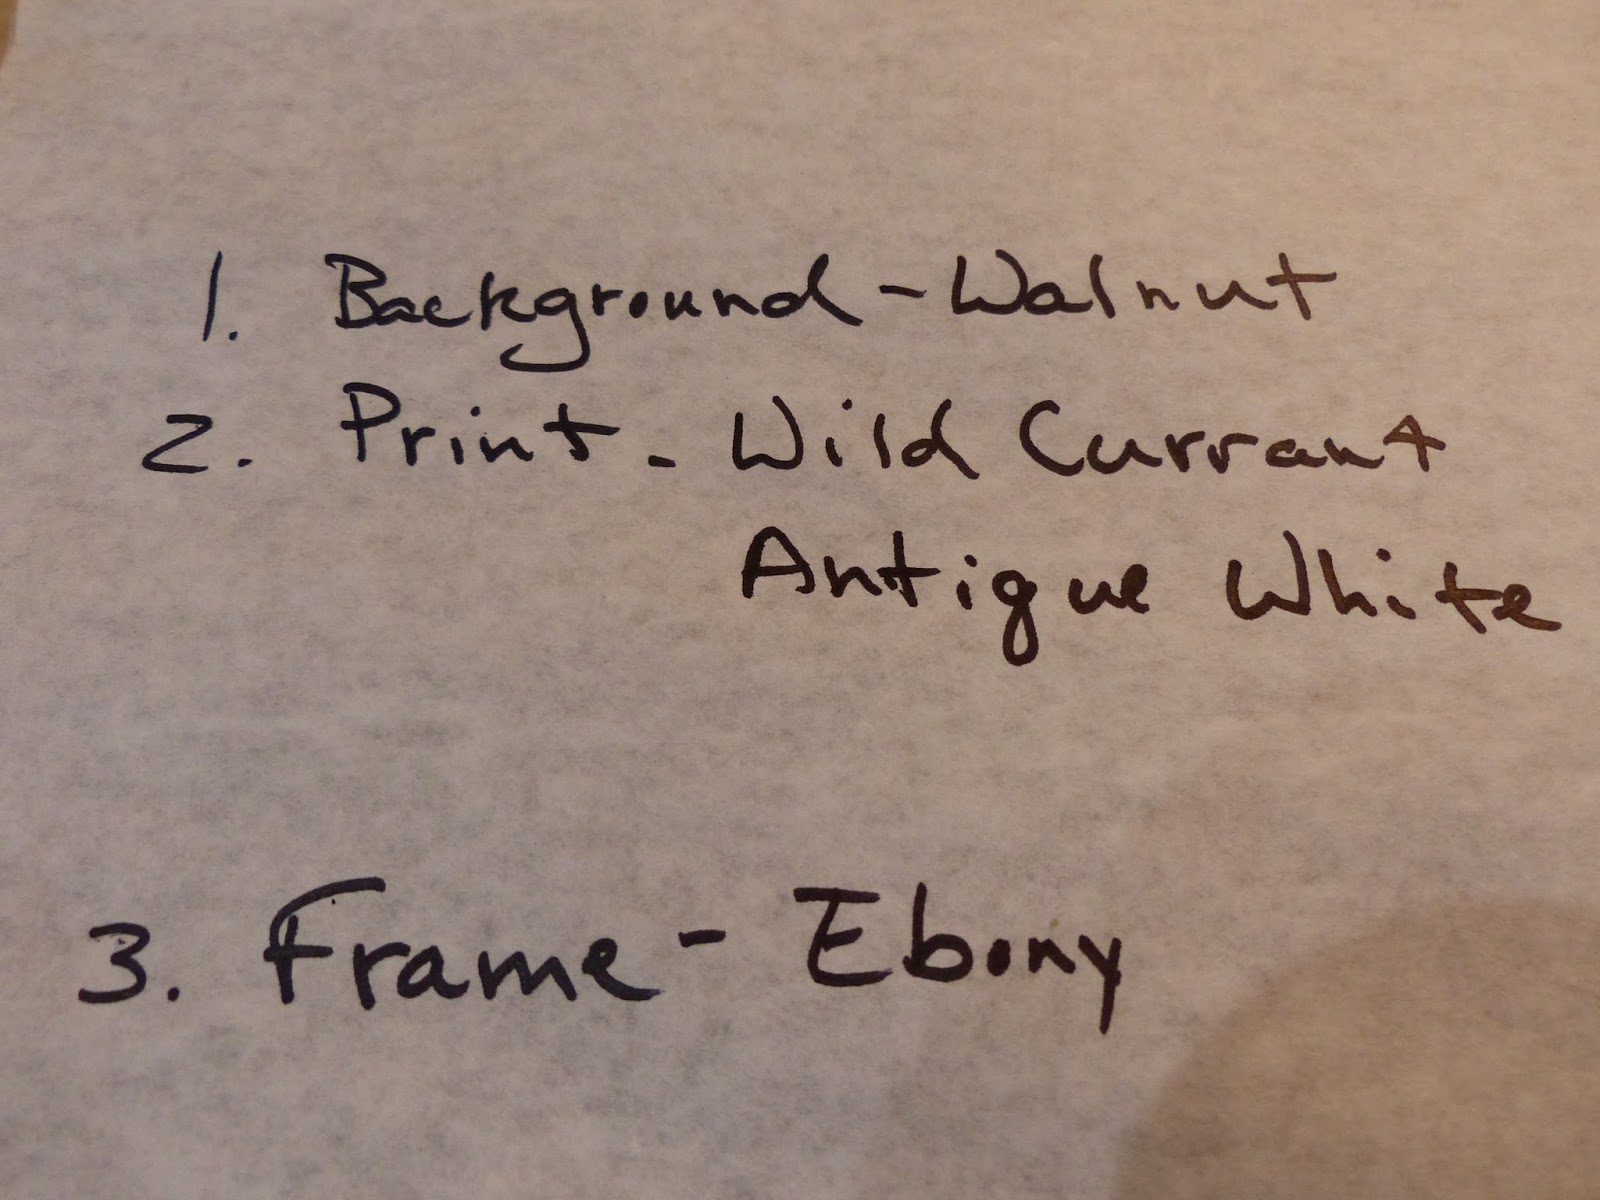 1. Background - Walnut
2. Print - Wild Currant
Antique White
3. Frame - Ebony